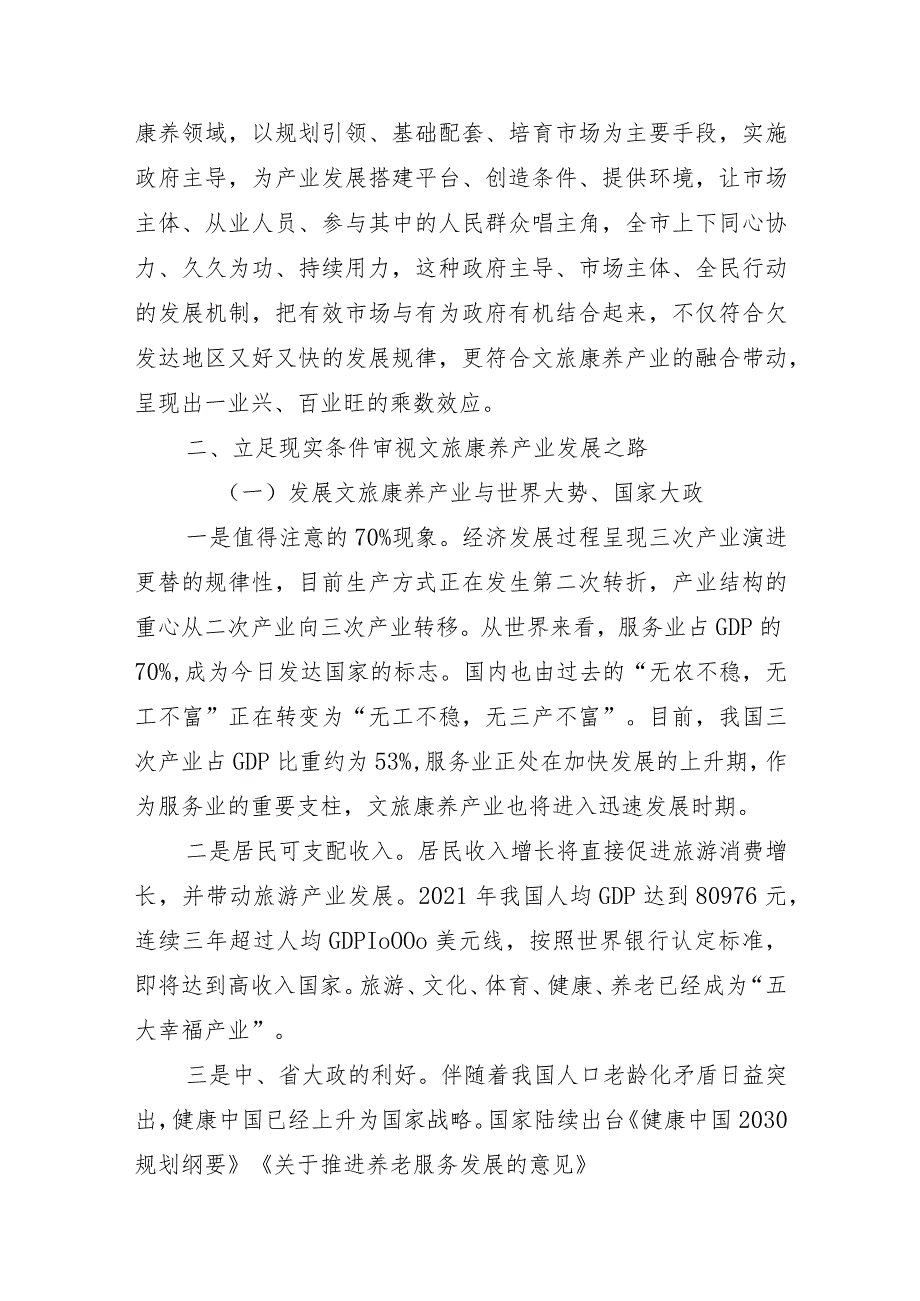 康养领域，以规划引领、基础配套、培育市场为主要手段，实施
政府主导，为产业发展搭建平台、创造条件、提供环境，让市场
主体、从业人员、参与其中的人民群众唱主角，全市上下同心协
力、久久为功、持续用力，这种政府主导、市场主体、全民行动
的发展机制，把有效市场与有为政府有机结合起来，不仅符合欠
发达地区又好又快的发展规律，更符合文旅康养产业的融合带动，
呈现出一业兴、百业旺的乘数效应。
二、立足现实条件审视文旅康养产业发展之路
（一）发展文旅康养产业与世界大势、国家大政
一是值得注意的 70%现象。经济发展过程呈现三次产业演进
更替的规律性，目前生产方式正在发生第二次转折，产业结构的
重心从二次产业向三次产业转移。从世界来看，服务业占 GDP 的
70%,成为今日发达国家的标志。国内也由过去的“无农不稳，无
工不富”正在转变为“无工不稳，无三产不富”。目前，我国三
次产业占 GDP 比重约为 53%,服务业正处在加快发展的上升期，作
为服务业的重要支柱，文旅康养产业也将进入迅速发展时期。
二是居民可支配收入。居民收入增长将直接促进旅游消费增
长，并带动旅游产业发展。2021 年我国人均 GDP 达到 80976 元，
连续三年超过人均 GDPIoOOo 美元线，按照世界银行认定标准，
即将达到高收入国家。旅游、文化、体育、健康、养老已经成为“五
大幸福产业”。
三是中、省大政的利好。伴随着我国人口老龄化矛盾日益突
出，健康中国已经上升为国家战略。国家陆续出台《健康中国 2030
规划纲要》《关于推进养老服务发展的意见》